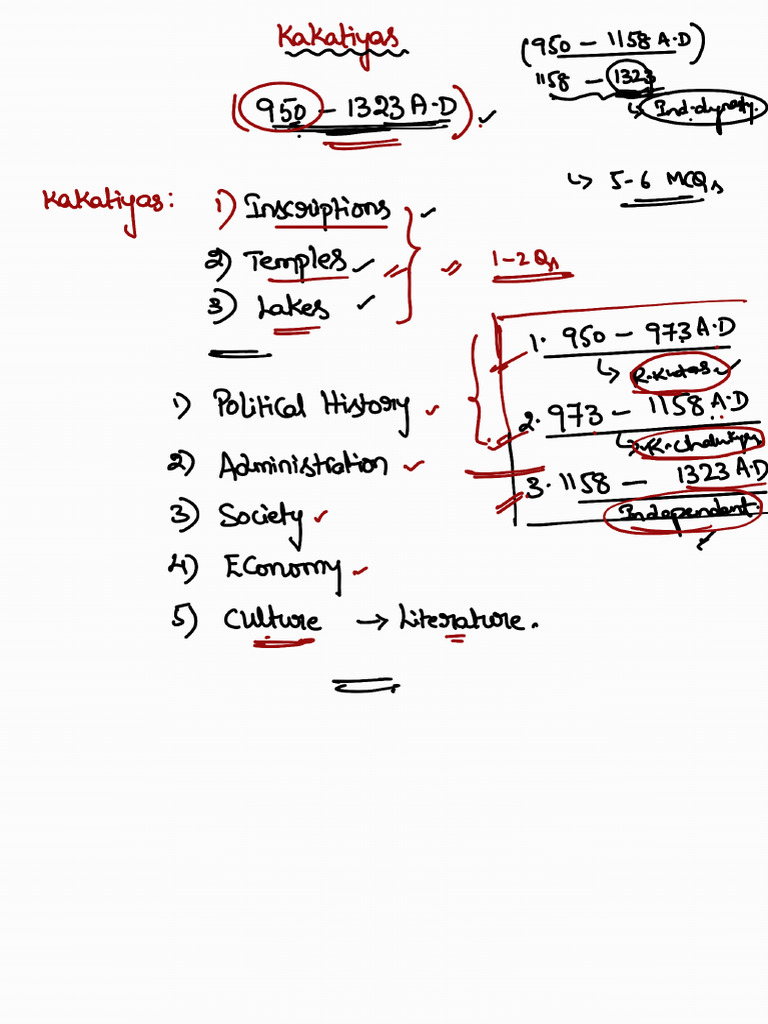 Kakatiyas
(950 - 1323 A.D)
(950 - 1158 A.D)
1158 - 1323
↳ Ind.dynasty.
↳ 5-6 MCQs
Kakatiyas:
1) Inscriptions
2) Temples
3) Lakes
1-2 Qs
1. 950 - 973 A.D
↳ R.Kutas
2. 973 - 1158 A.D
↳ K.Chalukyas
3. 1158 - 1323 A.D
Independent.
1) Political History
2) Administration
3) Society
4) Economy
5) Culture → Literature.